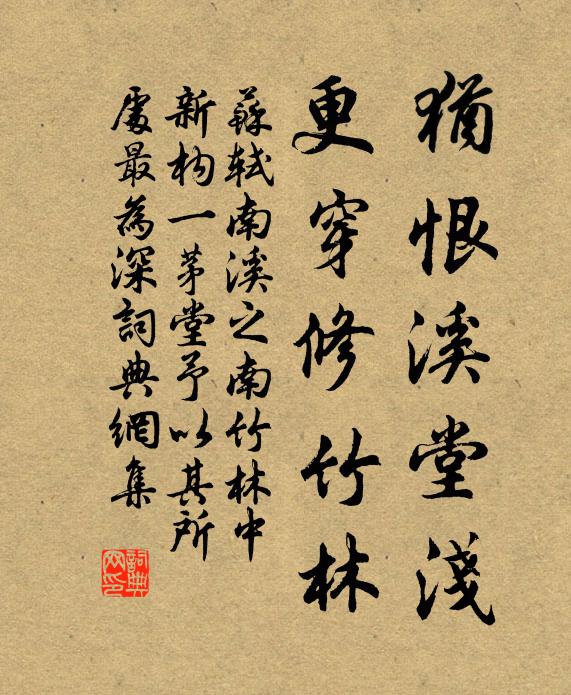 猶恨溪堂淺
更穿修竹林
蘇軾南溪之南竹林中
新构一茅堂予以其所
處最為深詞典網集
詞典
网印